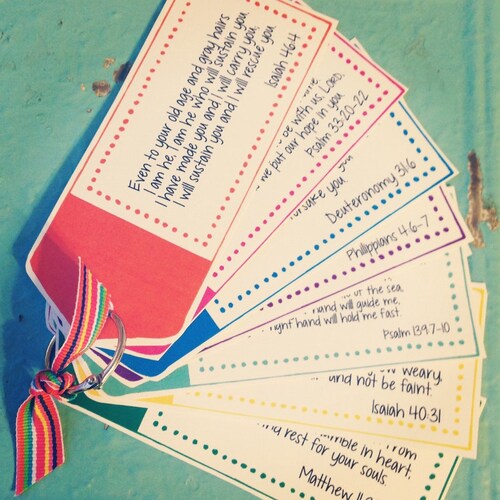 Even to your old age and gray hairs
I am he, I am he who will sustain you.
I have made you and I will carry you;
I will sustain you and I will rescue you.
Isaiah 46:4
be with us, Lord,
we put our hope in you.
Psalm 33:20-22
forsake you
Deuteronomy 31:6
Philippians 4:6-7
of the sea,
hand will guide me,
right hand will hold me fast.
Psalm 139:7-10
weary,
and not be faint.
Isaiah 40:31
from
humble in heart,
find rest for your souls.
Matthew 11